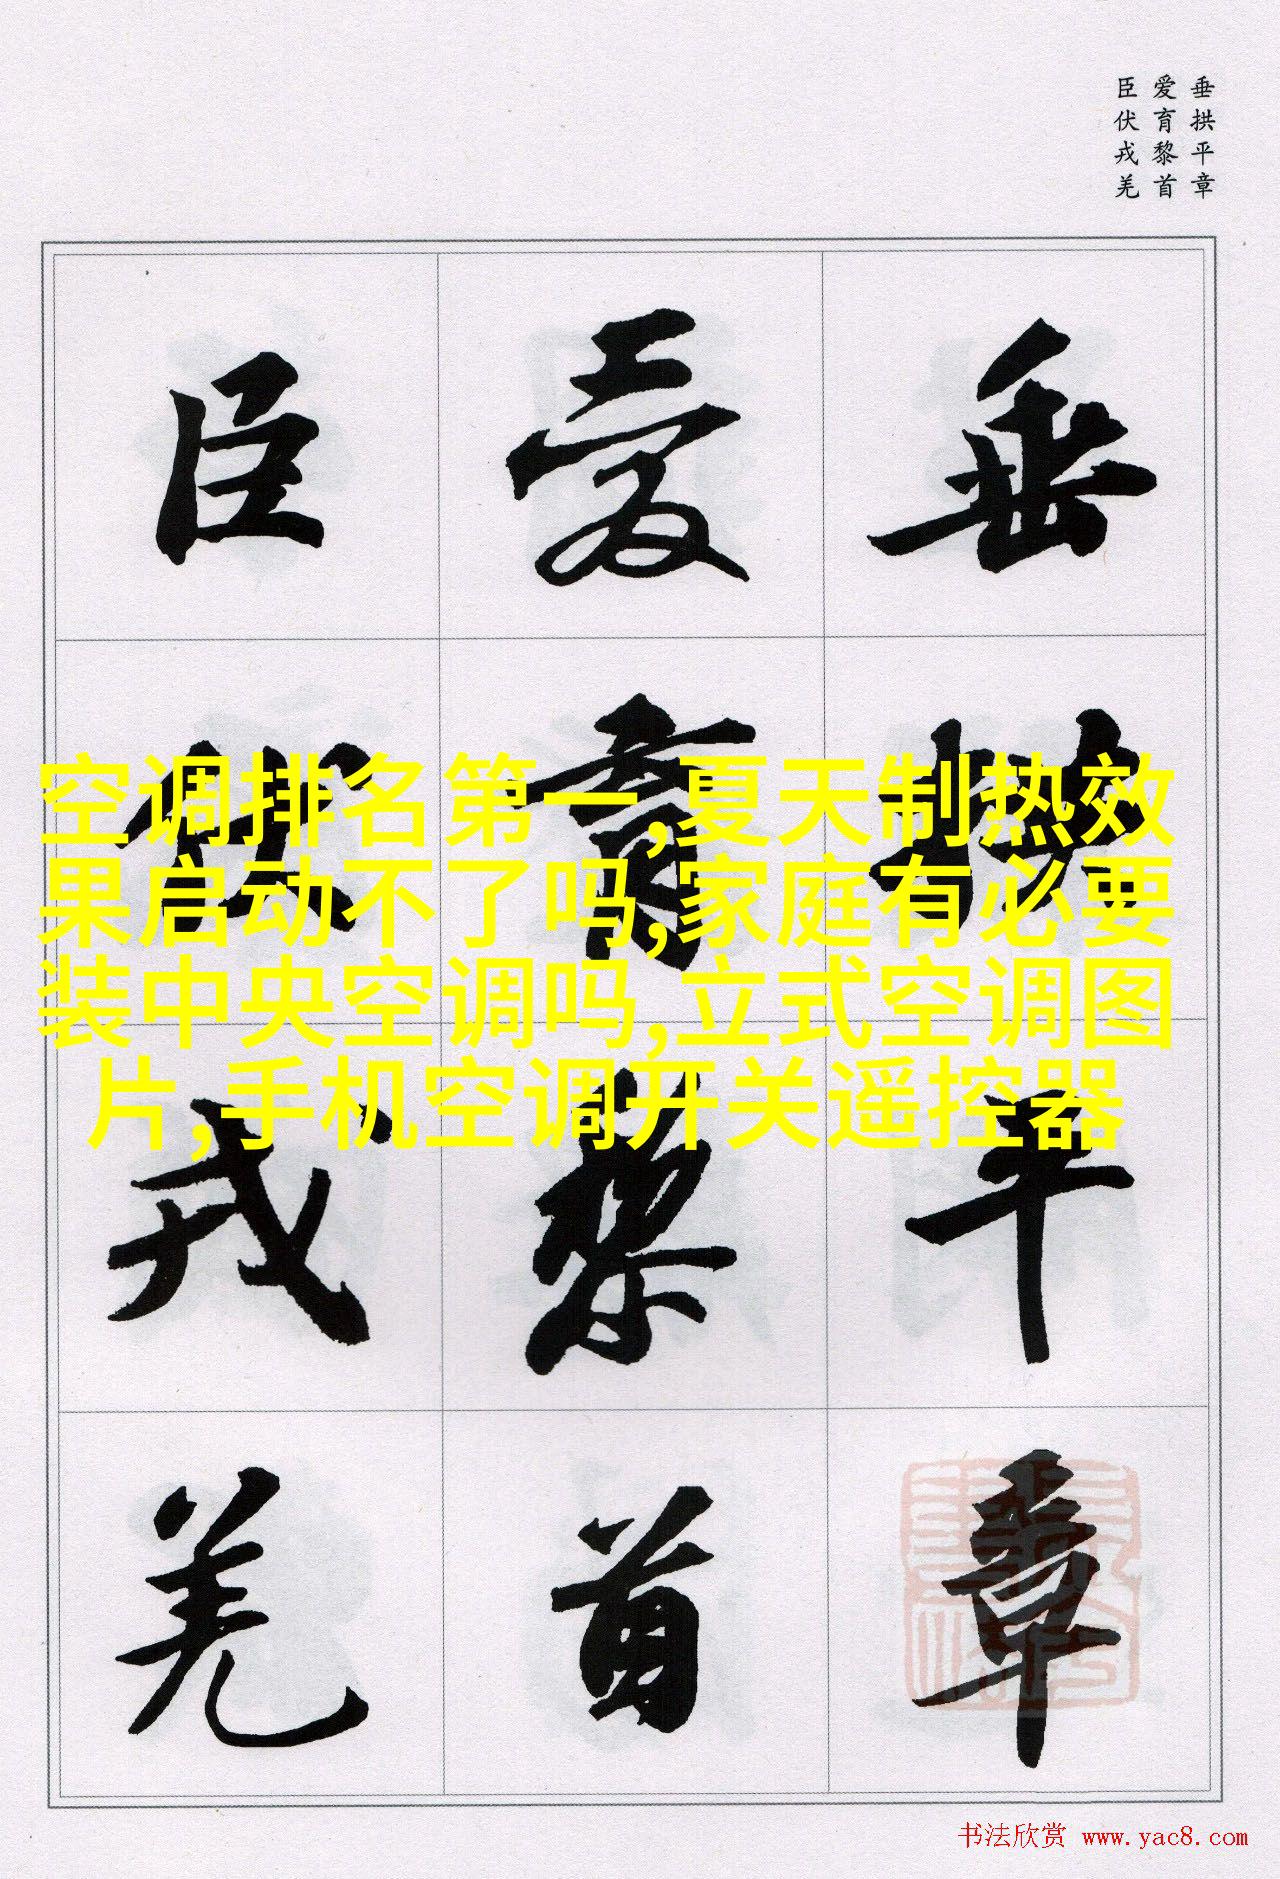 垂拱平章
爱育黎首
臣伏戎羌
垂拱平章
爱育黎首
臣伏戎羌
空调排名第一,夏天制热效
果启动不了吗,家庭有必要
装中央空调吗,立式空调图
片,手机空调开关遥控器
书法欣赏 www.yac8.com